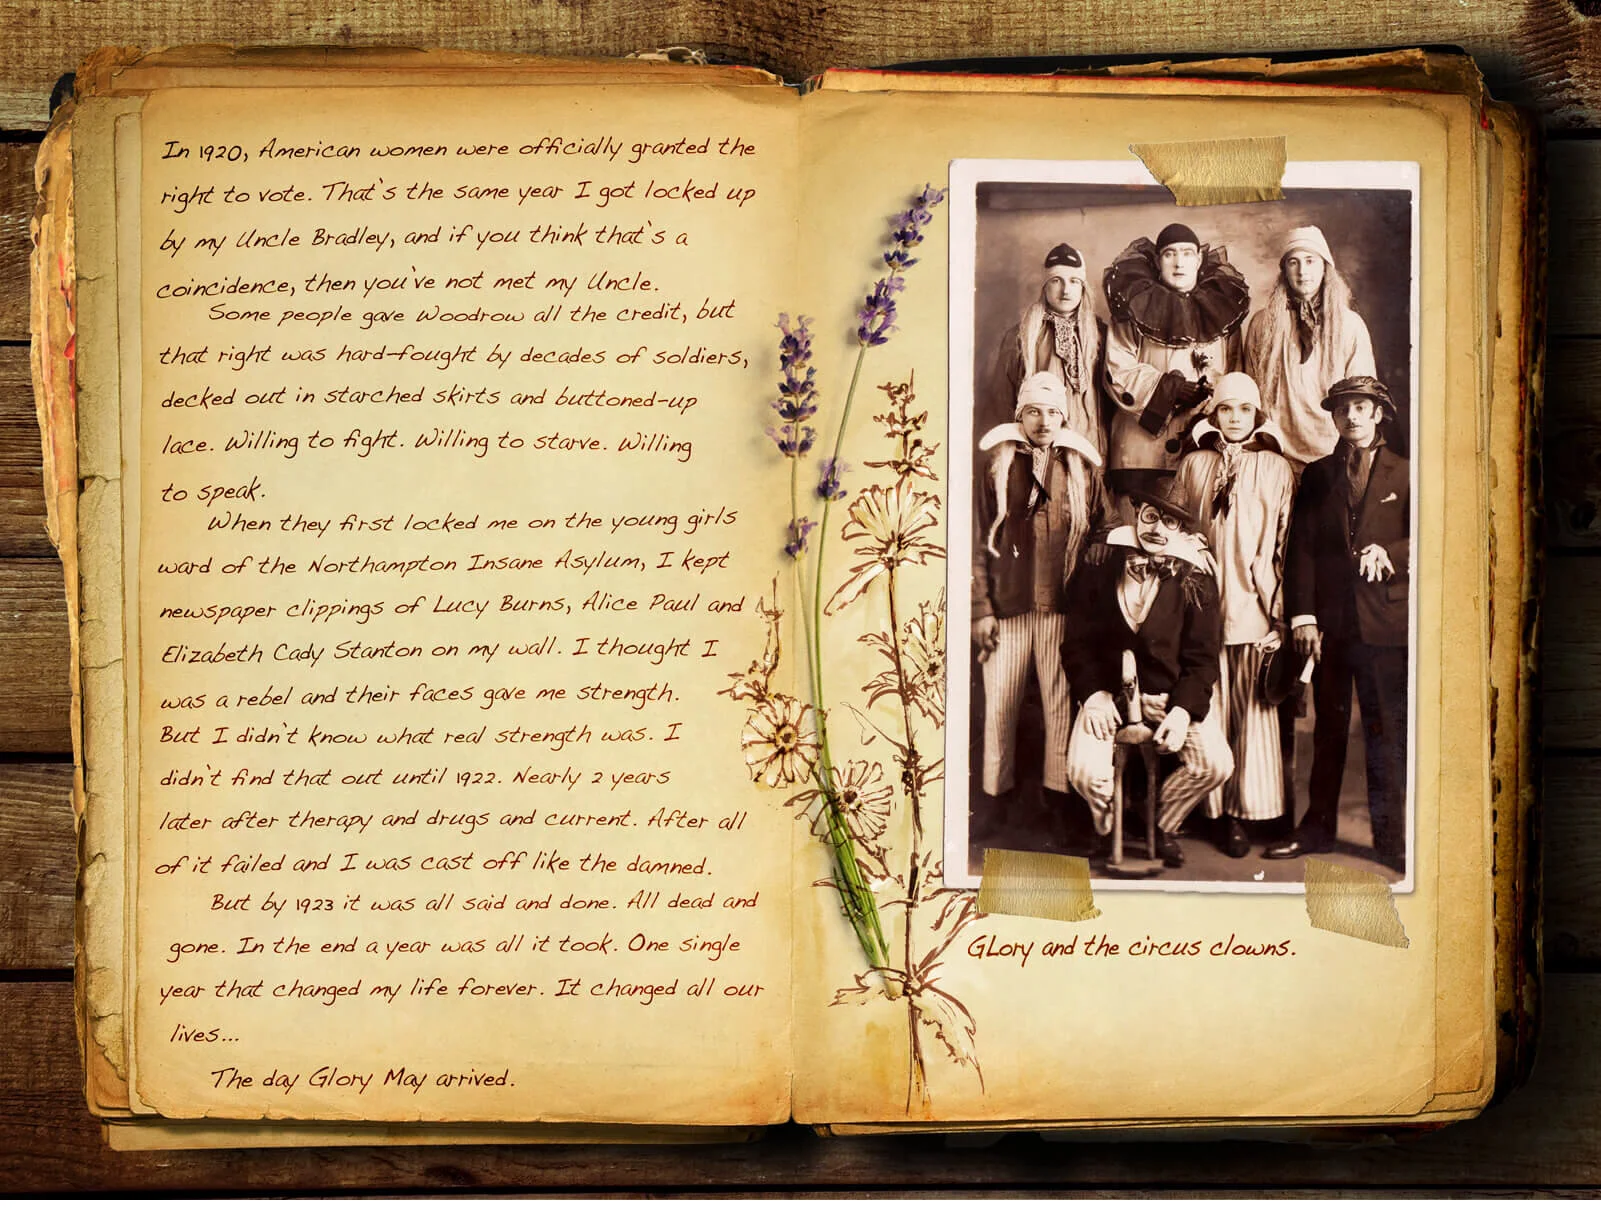 In 1920, American women were officially granted the
right to vote. That's the same year I got locked up
by my Uncle Bradley, and if you think that's a
coincidence, then you've not met my Uncle.
Some people gave Woodrow all the credit, but
that right was hard-fought by decades of soldiers,
decked out in starched skirts and buttoned-up
lace. Willing to fight. Willing to starve. Willing
to speak.
When they first locked me on the young girls
ward of the Northampton Insane Asylum, I kept
newspaper clippings of Lucy Burns, Alice Paul and
Elizabeth Cady Stanton on my wall. I thought I
was a rebel and their faces gave me strength.
But I didn't know what real strength was. I
didn't find that out until 1922. Nearly 2 years
later after therapy and drugs and current. After all
of it failed and I was cast off like the damned.
But by 1923 it was all said and done. All dead and
gone. In the end a year was all it took. One single
year that changed my life forever. It changed all our
lives...
The day Glory May arrived.
GLory and the circus clowns.